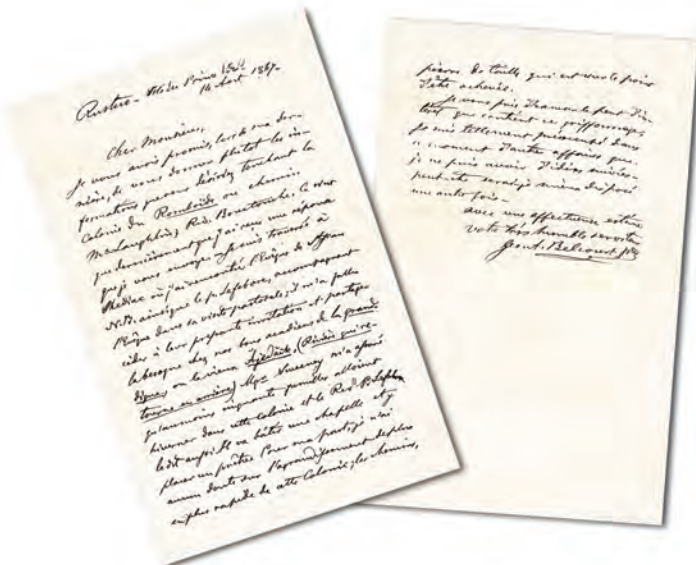 Rustico - Ile du Prince Edd.
14 Aout 1867.
Cher Monsieur,
Je vous avais promis, lors de ma der-
nière, de vous donner plutôt les in-
formations que vous désirez touchant la
Colonie du Romboide ou chemin
MacLaughlin, Rid. Bouctouche. Ce n'est
que dernièrement que j'ai reçu une réponse
que je vous envoye. Je suis trouvé à
Shediac où j'ai rencontré l'Evêque de St Jean
N.B. ainsi que le p. Lefebvre, accompagnant
l'Evêque dans sa visite pastorale; il m'a fallu
céder à leur pressante invitation et partager
la besogne chez nos bons acadiens de la grande
digue, ou la vieux (Rivière qui re-
tourne en arrière) Mgr Sweeney m'a assuré
qu'au moins cinquante familles alloient
hiverner dans cette colonie et le Revd. P. Lefebvre
le dit aussi. Il va bâtir une chapelle et y
placer un prêtre. Pour ma part je n'ai
aucun doute sur l'agrandissement de plus
en plus rapide de cette Colonie; les chemins,
pierre de taille qui est sur le point
d'être achevée.
Je vous prie d'excuser le peu d'in-
térêt que contient ce griffonnage
Je suis tellement préoccupé dans
ce moment d'autres affaires que
je ne puis avoir d'idées suivies -
peut-être serai-je mieux disposé
une autre fois -
avec une affectueuse estime
votre très humble serviteur
Geo. Ant. Belcourt ptre